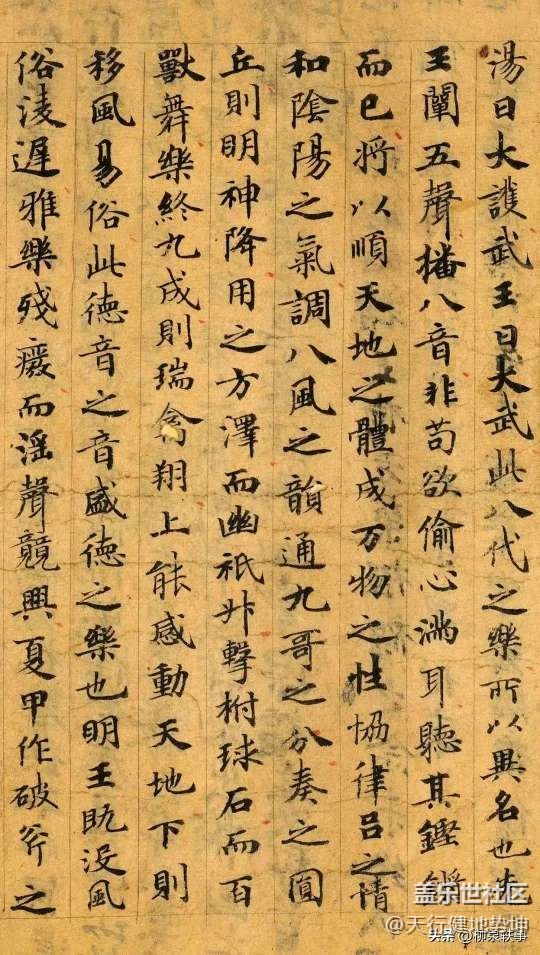 湯曰大護武王曰大武此八代之樂所以異名也先
王闡五聲橎八音非苟欲偷心滿耳聽其鏗鏘
而已將以順天地之體成万物之性協律呂之情
和陰陽之氣調八風之韻通九哥之分奏之圓
丘則明神降用之方澤而幽祇升擊柎球石而百
獸舞樂終九成則瑞禽翔上能感動天地下則
移風易俗此德音之音盛德之樂也明王既没風
俗淩遲雅樂殘癈而滛聲競興夏甲作破斧之
盖乐世社区
@天行健地势坤
头条 @柳泉轶事